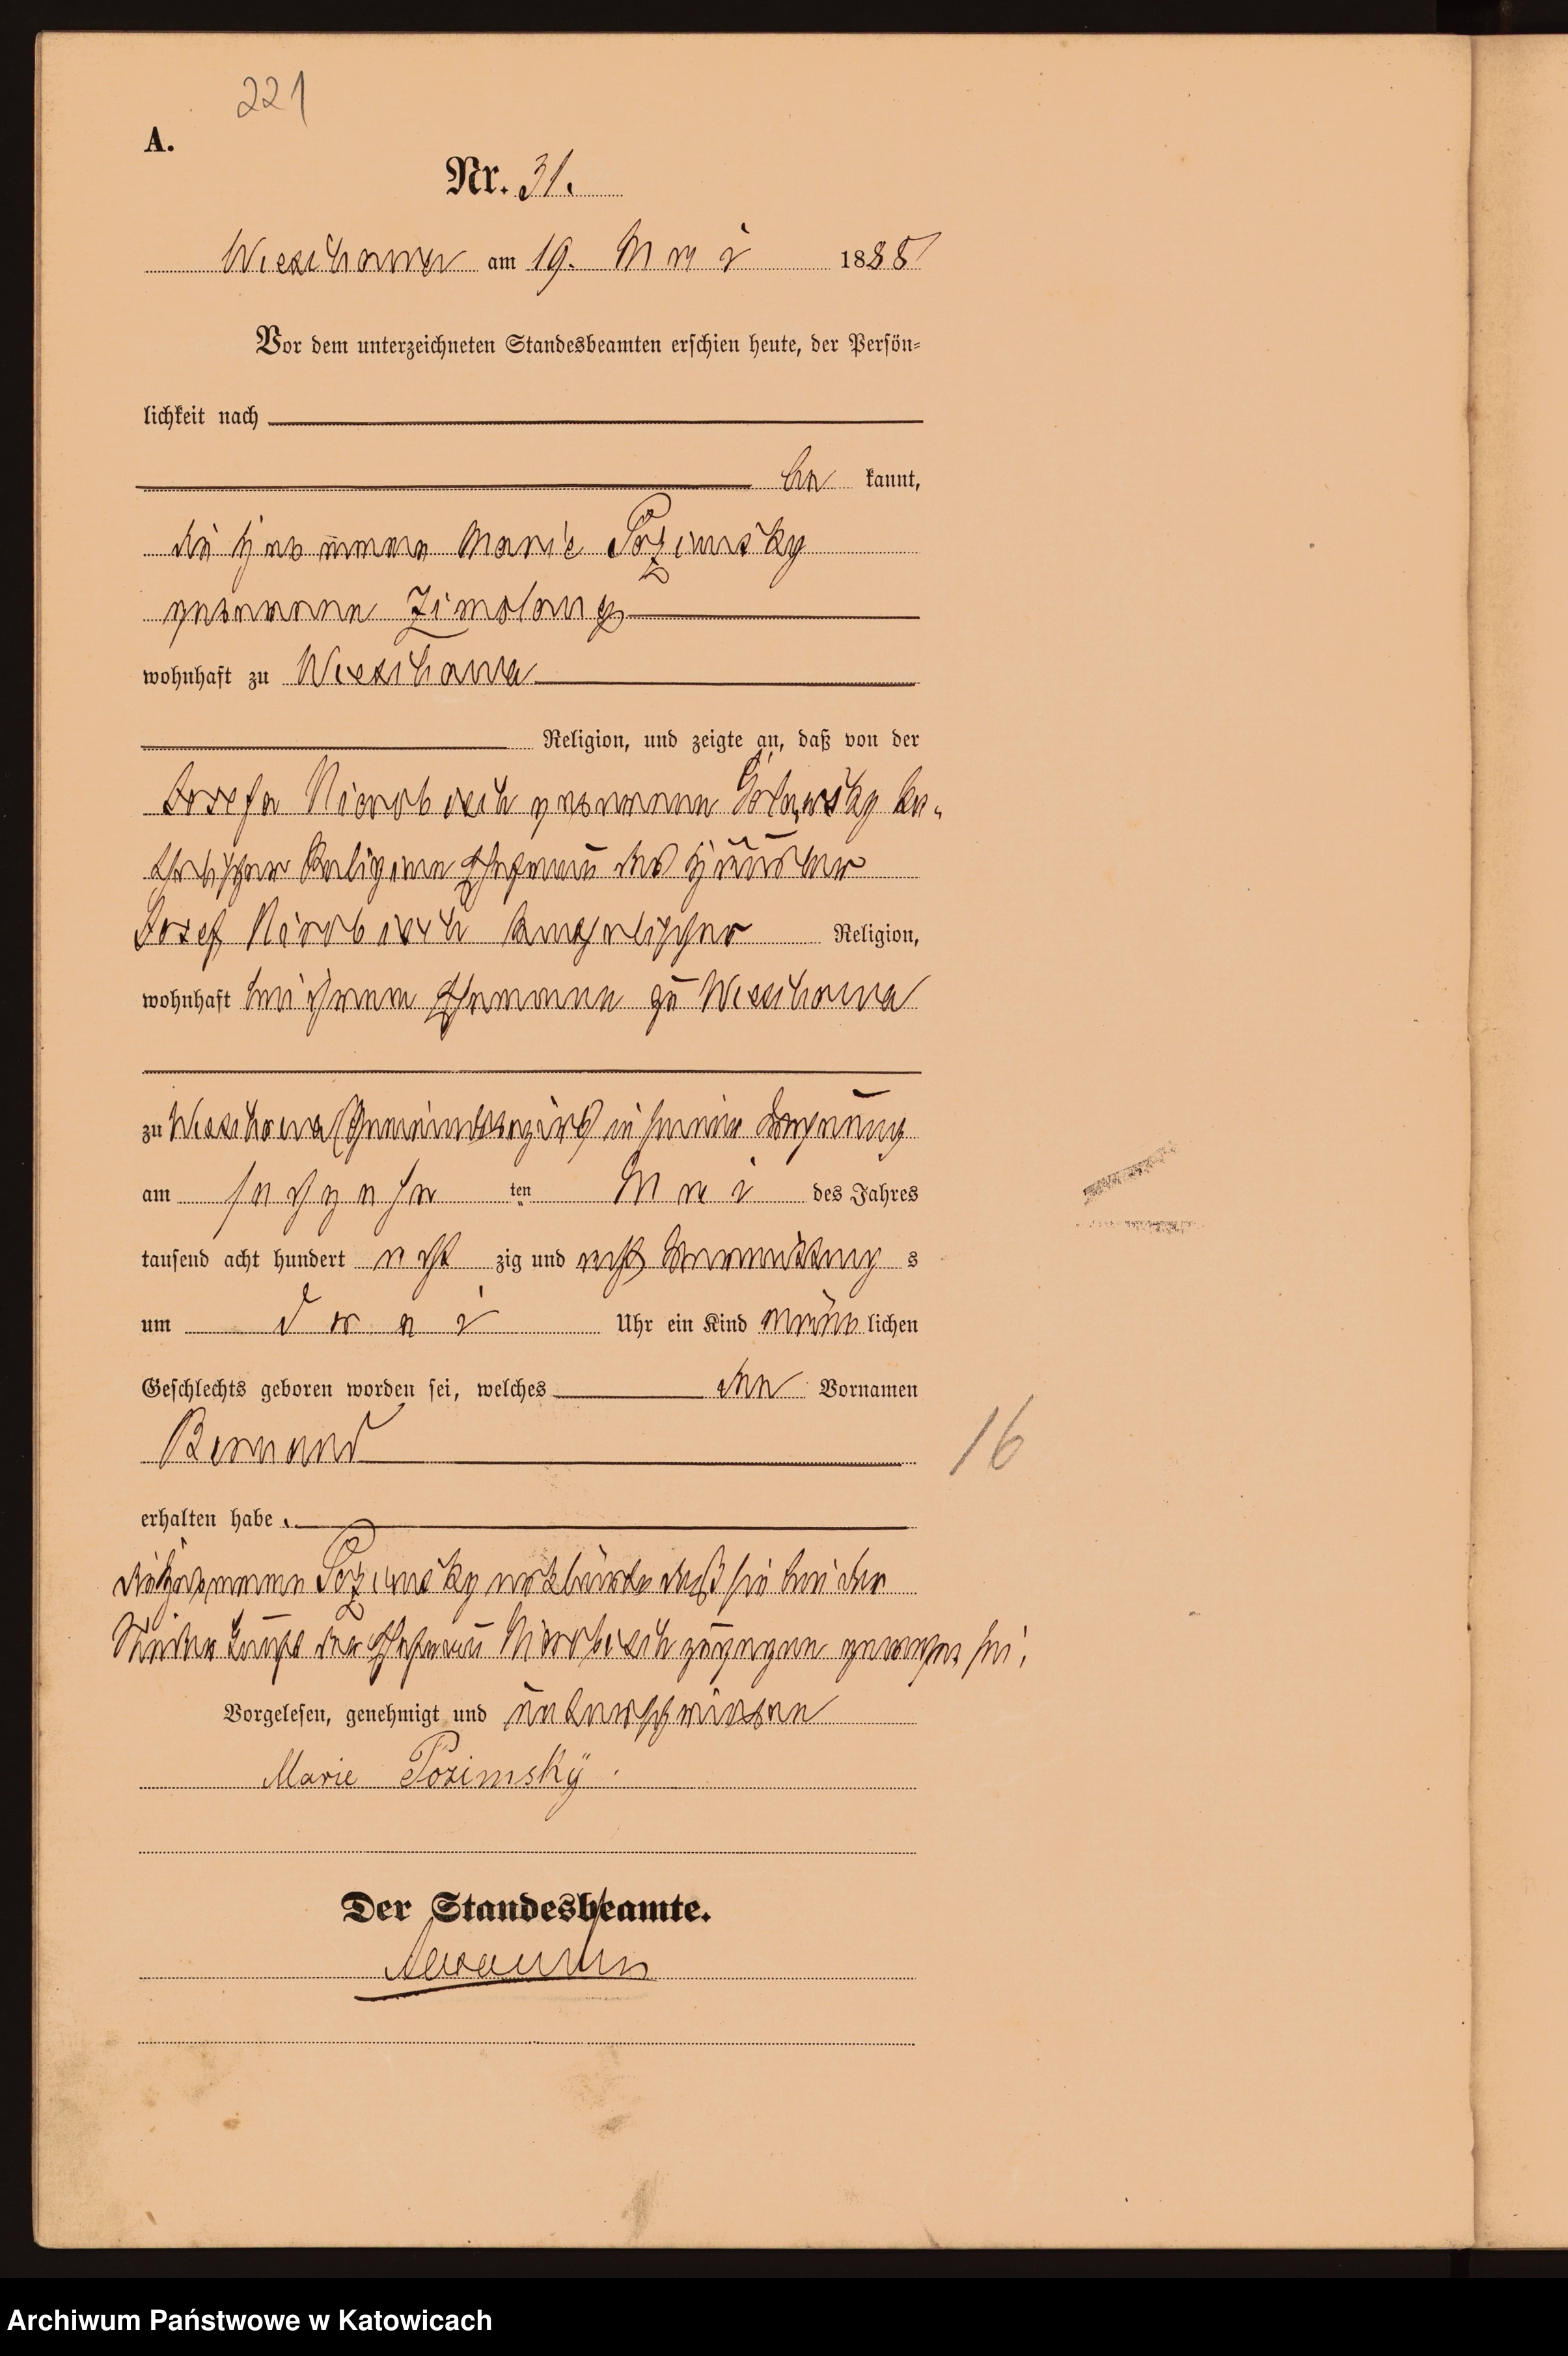 221
A.
Nr. 31.
Wieschowa am 19. Mai 1888
Vor dem unterzeichneten Standesbeamten erschien heute, der Persön=
lichkeit nach
be kannt,
die Hebamme Marie Pozimsky
geborene Zimolong
wohnhaft zu Wieschowa
Religion, und zeigte an, daß von der
Josefa geborene ka-
tholischer Religion Ehefrau des Häusler
Josef katholischer Religion,
wohnhaft bei ihrem Ehemanne zu Wieschowa
zu Wieschowa Gemeindebezirk in seiner Wohnung
am sechzehn ten Mai des Jahres
tausend acht hundert acht zig und acht Vormittag s
um drei Uhr ein Kind männ lichen
Geschlechts geboren worden sei, welches den Vornamen
16
erhalten habe.
die Hebamme Pozimsky erklärte daß sie bei der
Niederkunft der Ehefrau zugegen gewesen sei.
Vorgelesen, genehmigt und unterschrieben
Marie Pozimsky.
Der Standesbeamte.
Archiwum Państwowe w Katowicach